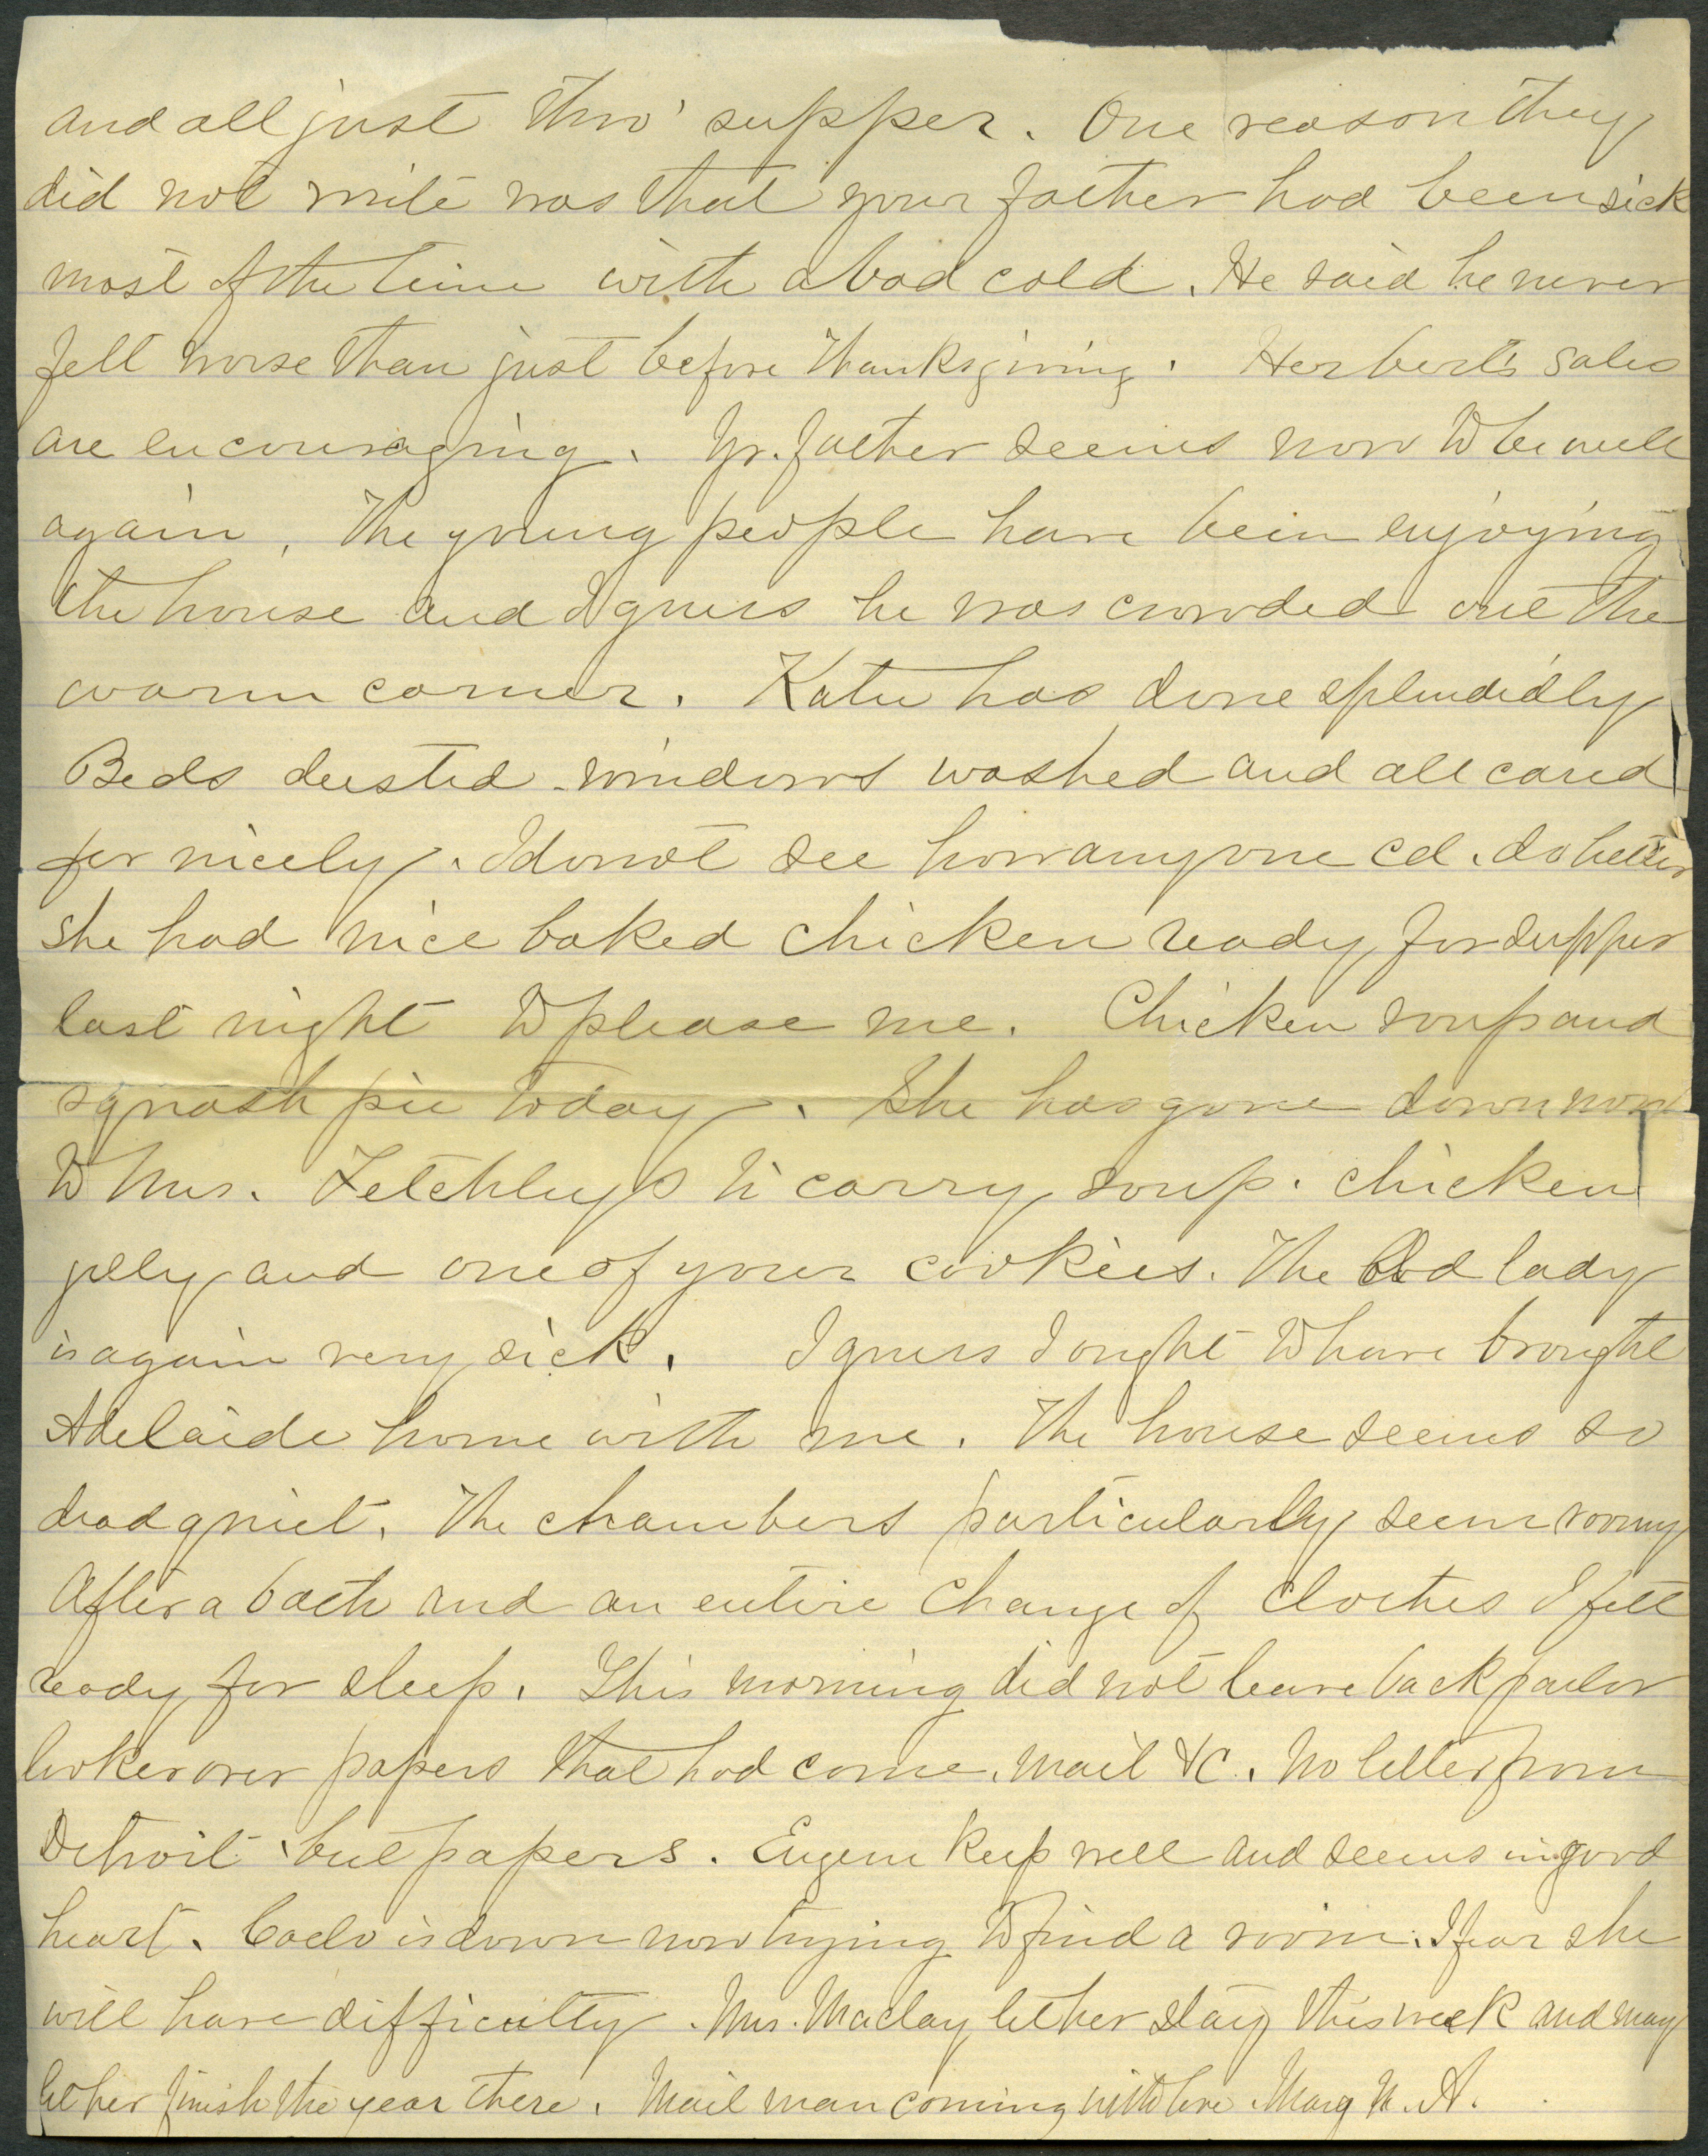 and all just thro' supper. One reason they
did not write was that your father had been sick
most of the time with a bad cold. He said he never
felt worse than just before Thanksgiving. Herbert's sales
are encouraging. Yr. father seems now to be well
again. The young people have been enjoying
the house and I guess he was crowded out the
warm corner. Katie has done splendidly
Beds dusted windows washed and all cared
for nicely. I do not see how anyone cd. do better
She had nice baked chicken ready for supper
last night to please me. Chicken soup and
squash pie today. She has gone down now
to Mrs. Letchley's to carry soup. chicken
jelly and one of your cookies. The old lady
is again very sick. I guess I ought to have brought
Adelaide home with me. The house seems so
dead quiet. The chambers particularly seem roomy
After a bath and an entire change of clothes I felt
ready for sleep. This morning did not leave back parlor
looked over papers that had come. Mail &c. No letter from
Detroit but papers. Eugene keep well and seems in good
heart. is down now trying to find a room. I fear she
will have difficulty. Mrs. Maclay let her stay this week and may
let her finish the year there. Mail man coming with love. Mary H. A.